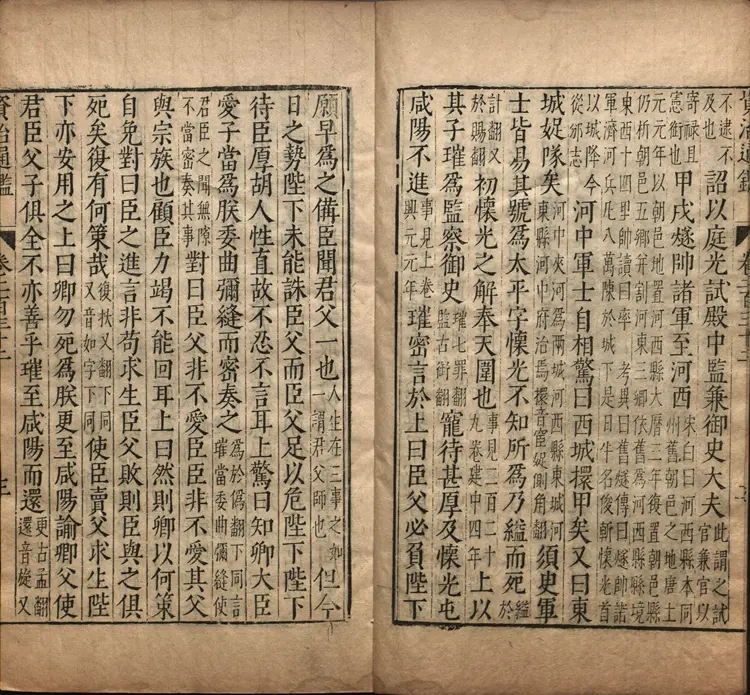 不逮不及也詔以庭光試殿中監兼御史大夫此謂之試官兼官以
寄祿且憲銜也甲戌燧帥諸軍至河西宋白曰河西縣本同州舊朝邑之地唐上
元元年以朝邑地置河西縣大曆三年復置朝邑縣仍析朝邑五鄉并割河東三鄉依舊爲河西縣縣境
東西十四里帥讀曰率考異曰舊燧傳曰燧帥諸軍濟河兵凡八萬陳於城下是日牛名俊斬懷光首
以城降今從邠志河中軍士自相驚曰西城擐甲矣又曰東
城娖隊矣河中夾河爲兩城河西縣東城河東縣河中府治焉擐音宦娖則角翻須臾軍
士皆易其號爲太平字懷光不知所爲乃縊而死縊於
計翻又於賜翻初懷光之解奉天圍也事見二百二十九卷建中四年上以
其子璀爲監察御史璀七罪翻監古銜翻寵待甚厚及懷光屯
咸陽不進事見上卷興元元年璀密言於上曰臣父必負陛下
願早爲之備臣聞君父一也人生在三事之如一謂君父師也但今
日之勢陛下未能誅臣父而臣父足以危陛下陛下
待臣厚胡人性直故不忍不言耳上驚曰知卿大臣
愛子當爲朕委曲彌縫而密奏之爲於僞翻下同言璀當委曲彌縫使
君臣之間無隙不當密奏其事對曰臣父非不愛臣臣非不愛其父
與宗族也顧臣力竭不能回耳上曰然則卿以何策
自免對曰臣之進言非苟求生臣父敗則臣與之俱
死矣復有何策哉復扶又翻下同又音如字下同使臣賣父求生陛
下亦安用之上曰卿勿死爲朕更至咸陽諭卿父使
君臣父子俱全不亦善乎璀至咸陽而還更古孟翻還音旋又
資治通鑑 卷二百三十二